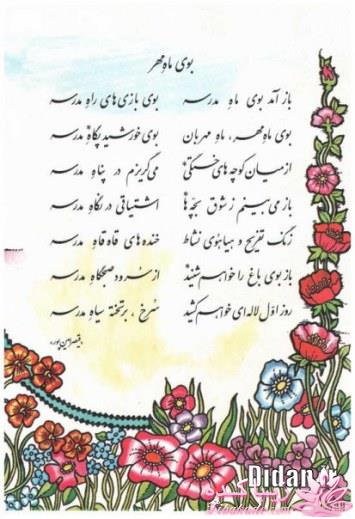 بوی ماه مهر
باز آمد بوی ماه مدرسه بوی بازی های راه مدرسه
بوی ماه مهر، ماه مهربان بوی خورشید پگاه مدرسه
از میان کوچه های خستگی می گریزم در پناه مدرسه
باز می بینم ز شوق بچّه ها اشتیاقی در نگاه مدرسه
زنگ تفریح و هیاهوی نشاط خنده های قاه قاه مدرسه
باز بوی باغ را خواهم شنید از سرود صبحگاه مدرسه
روز اوّل لاله ای خواهم کشید سُرخ، بر تخته سیاهِ مدرسه
«قیصر امین پور»
Didar.ir